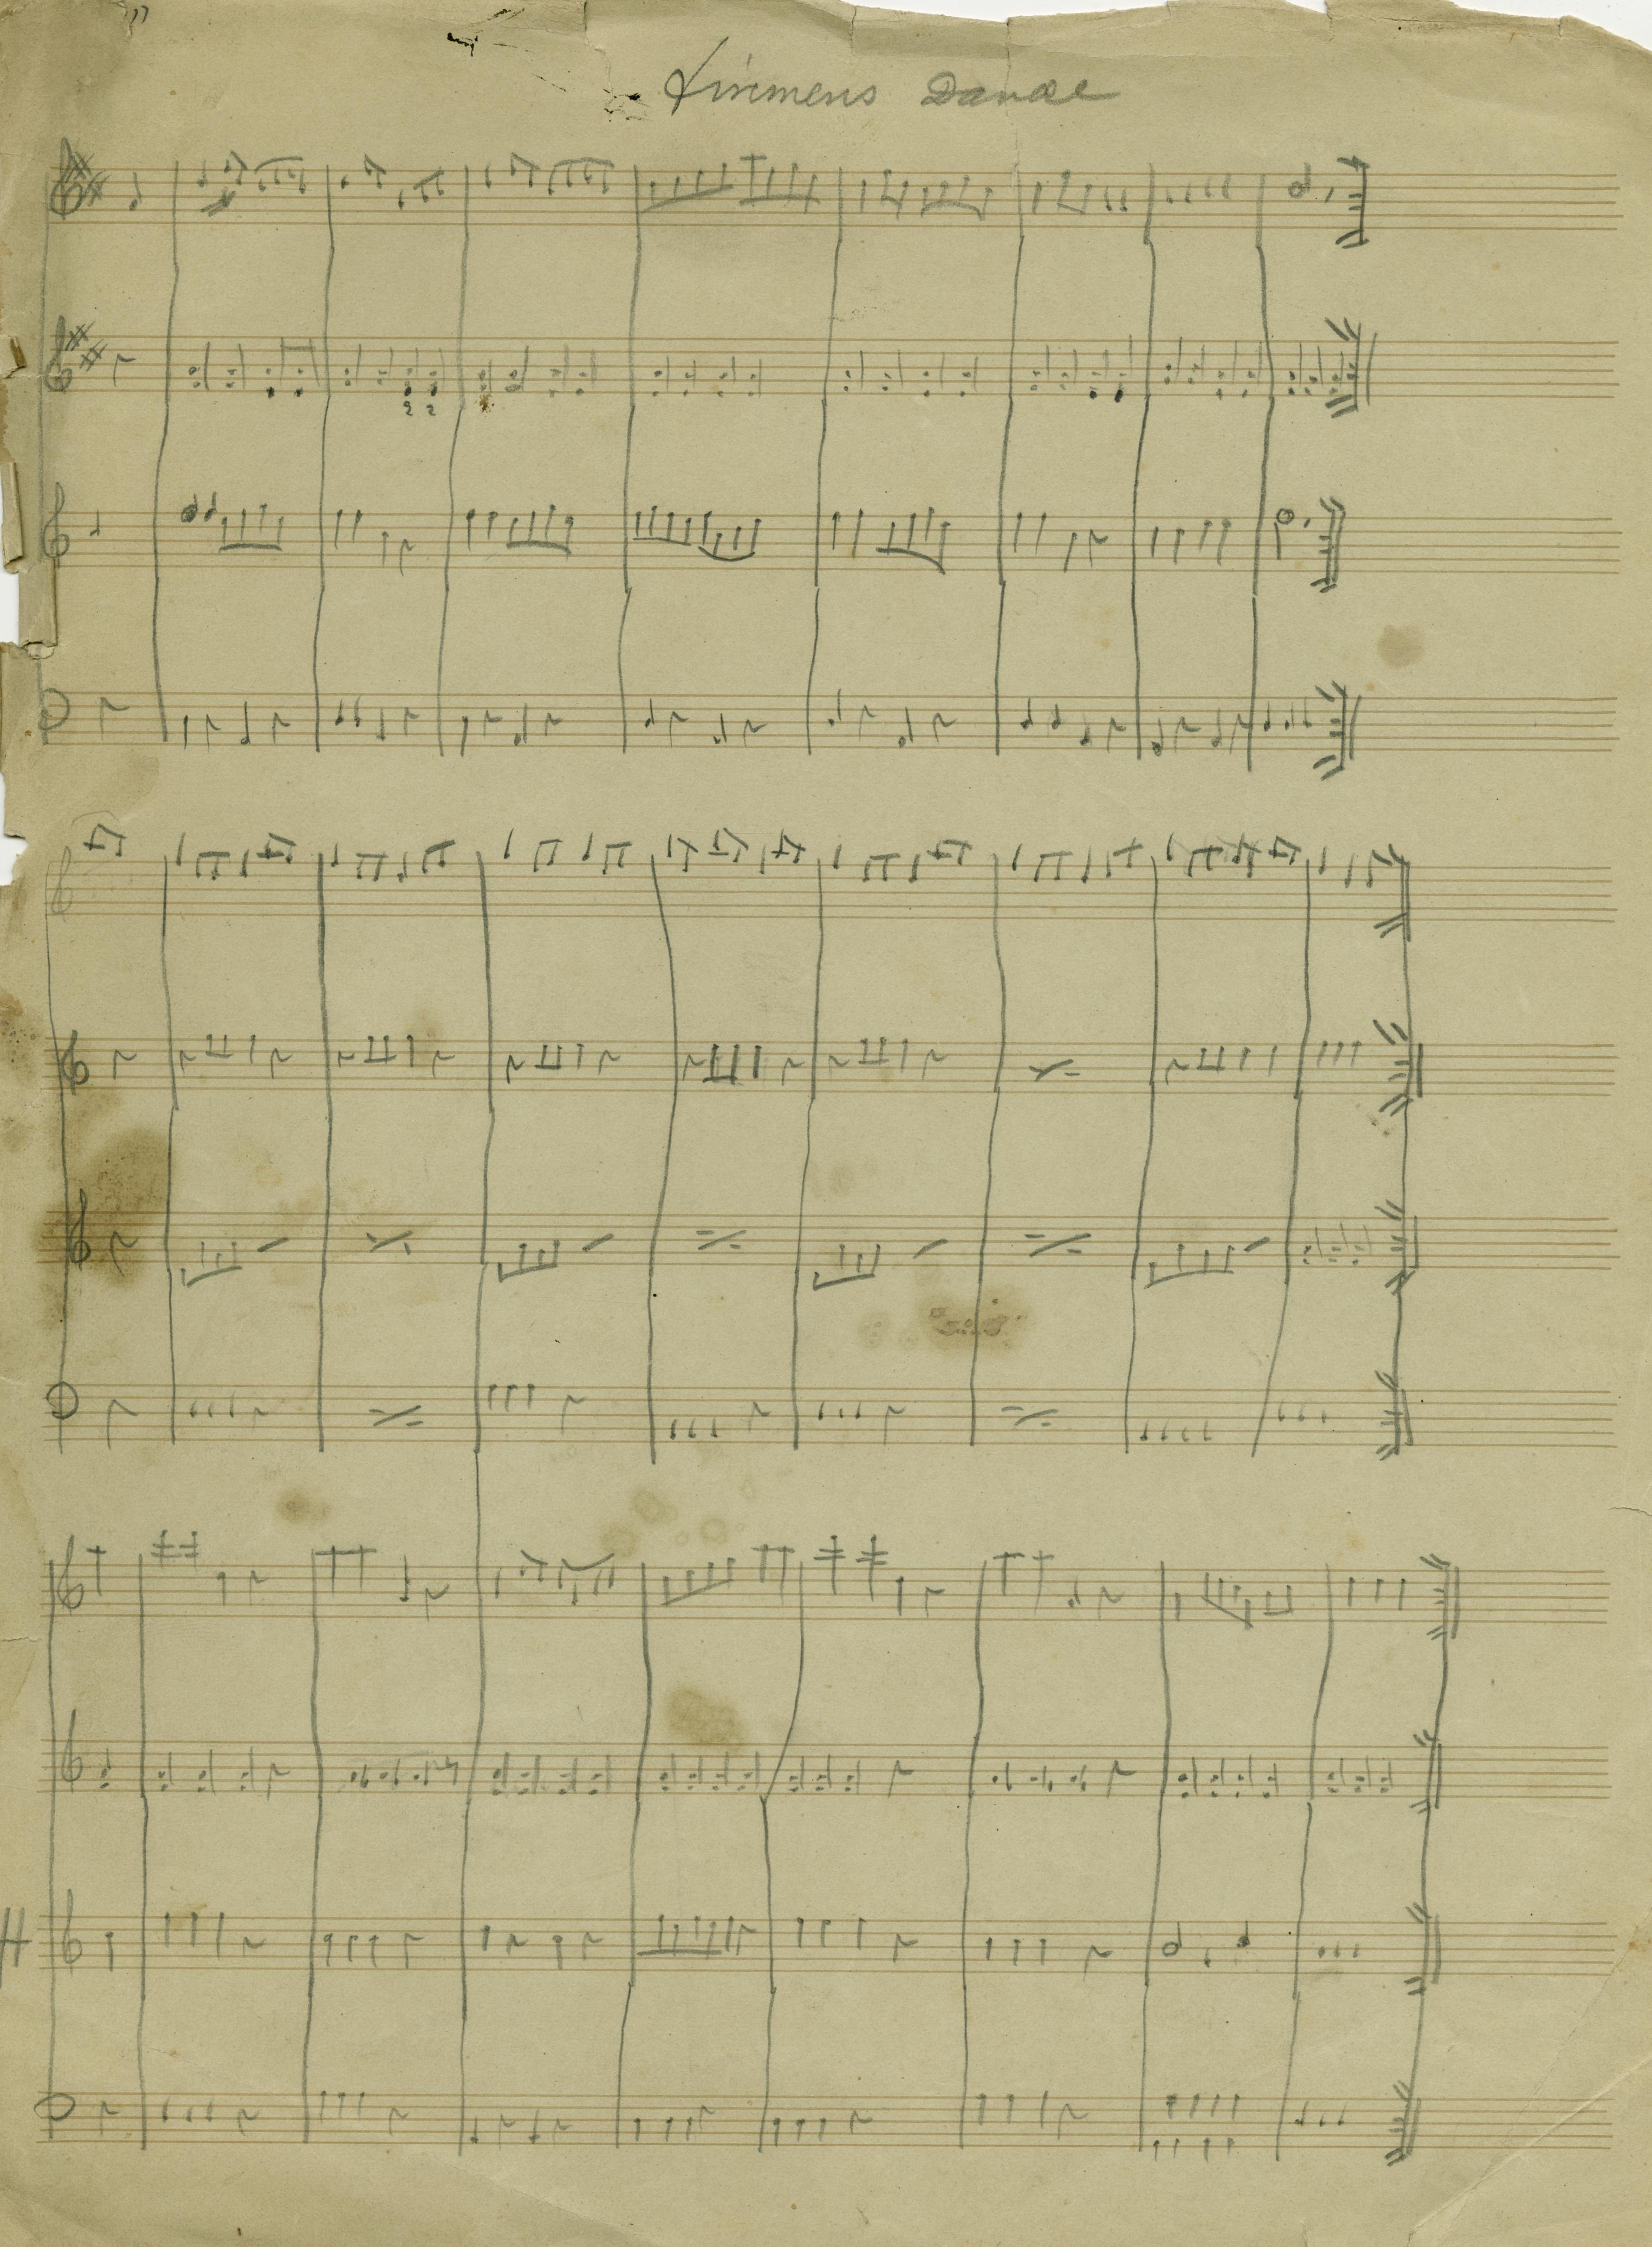 Firemens Dance
2 2